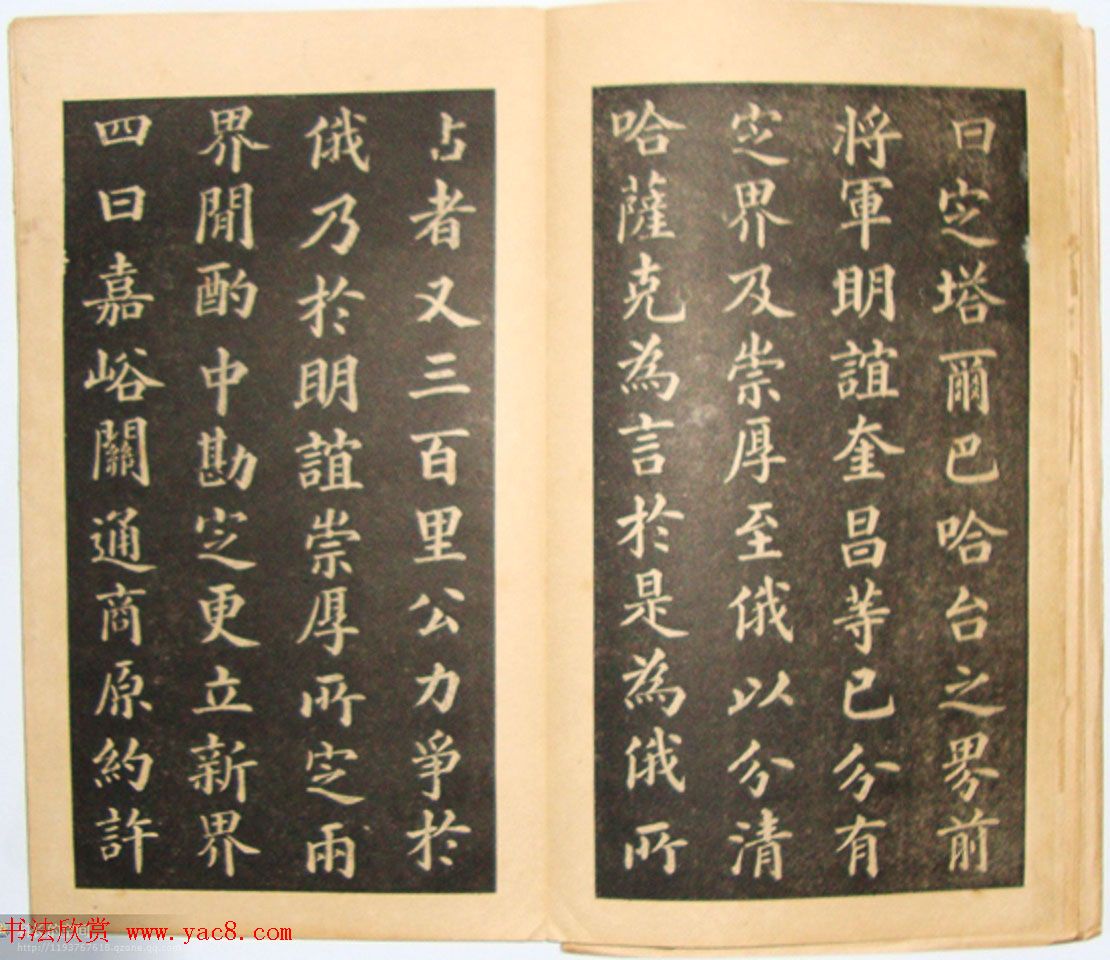 曰定塔爾巴哈台之界前
將軍明誼奎昌等已分有
定界及崇厚至俄以分清
哈薩克為言於是為俄所
占者又三百里公力爭於
俄乃於明誼崇厚所定兩
界間酌中勘定更立新界
四曰嘉峪關通商原約許
书法欣赏 www.yac8.com
http://1193767618.qzone.qq.com